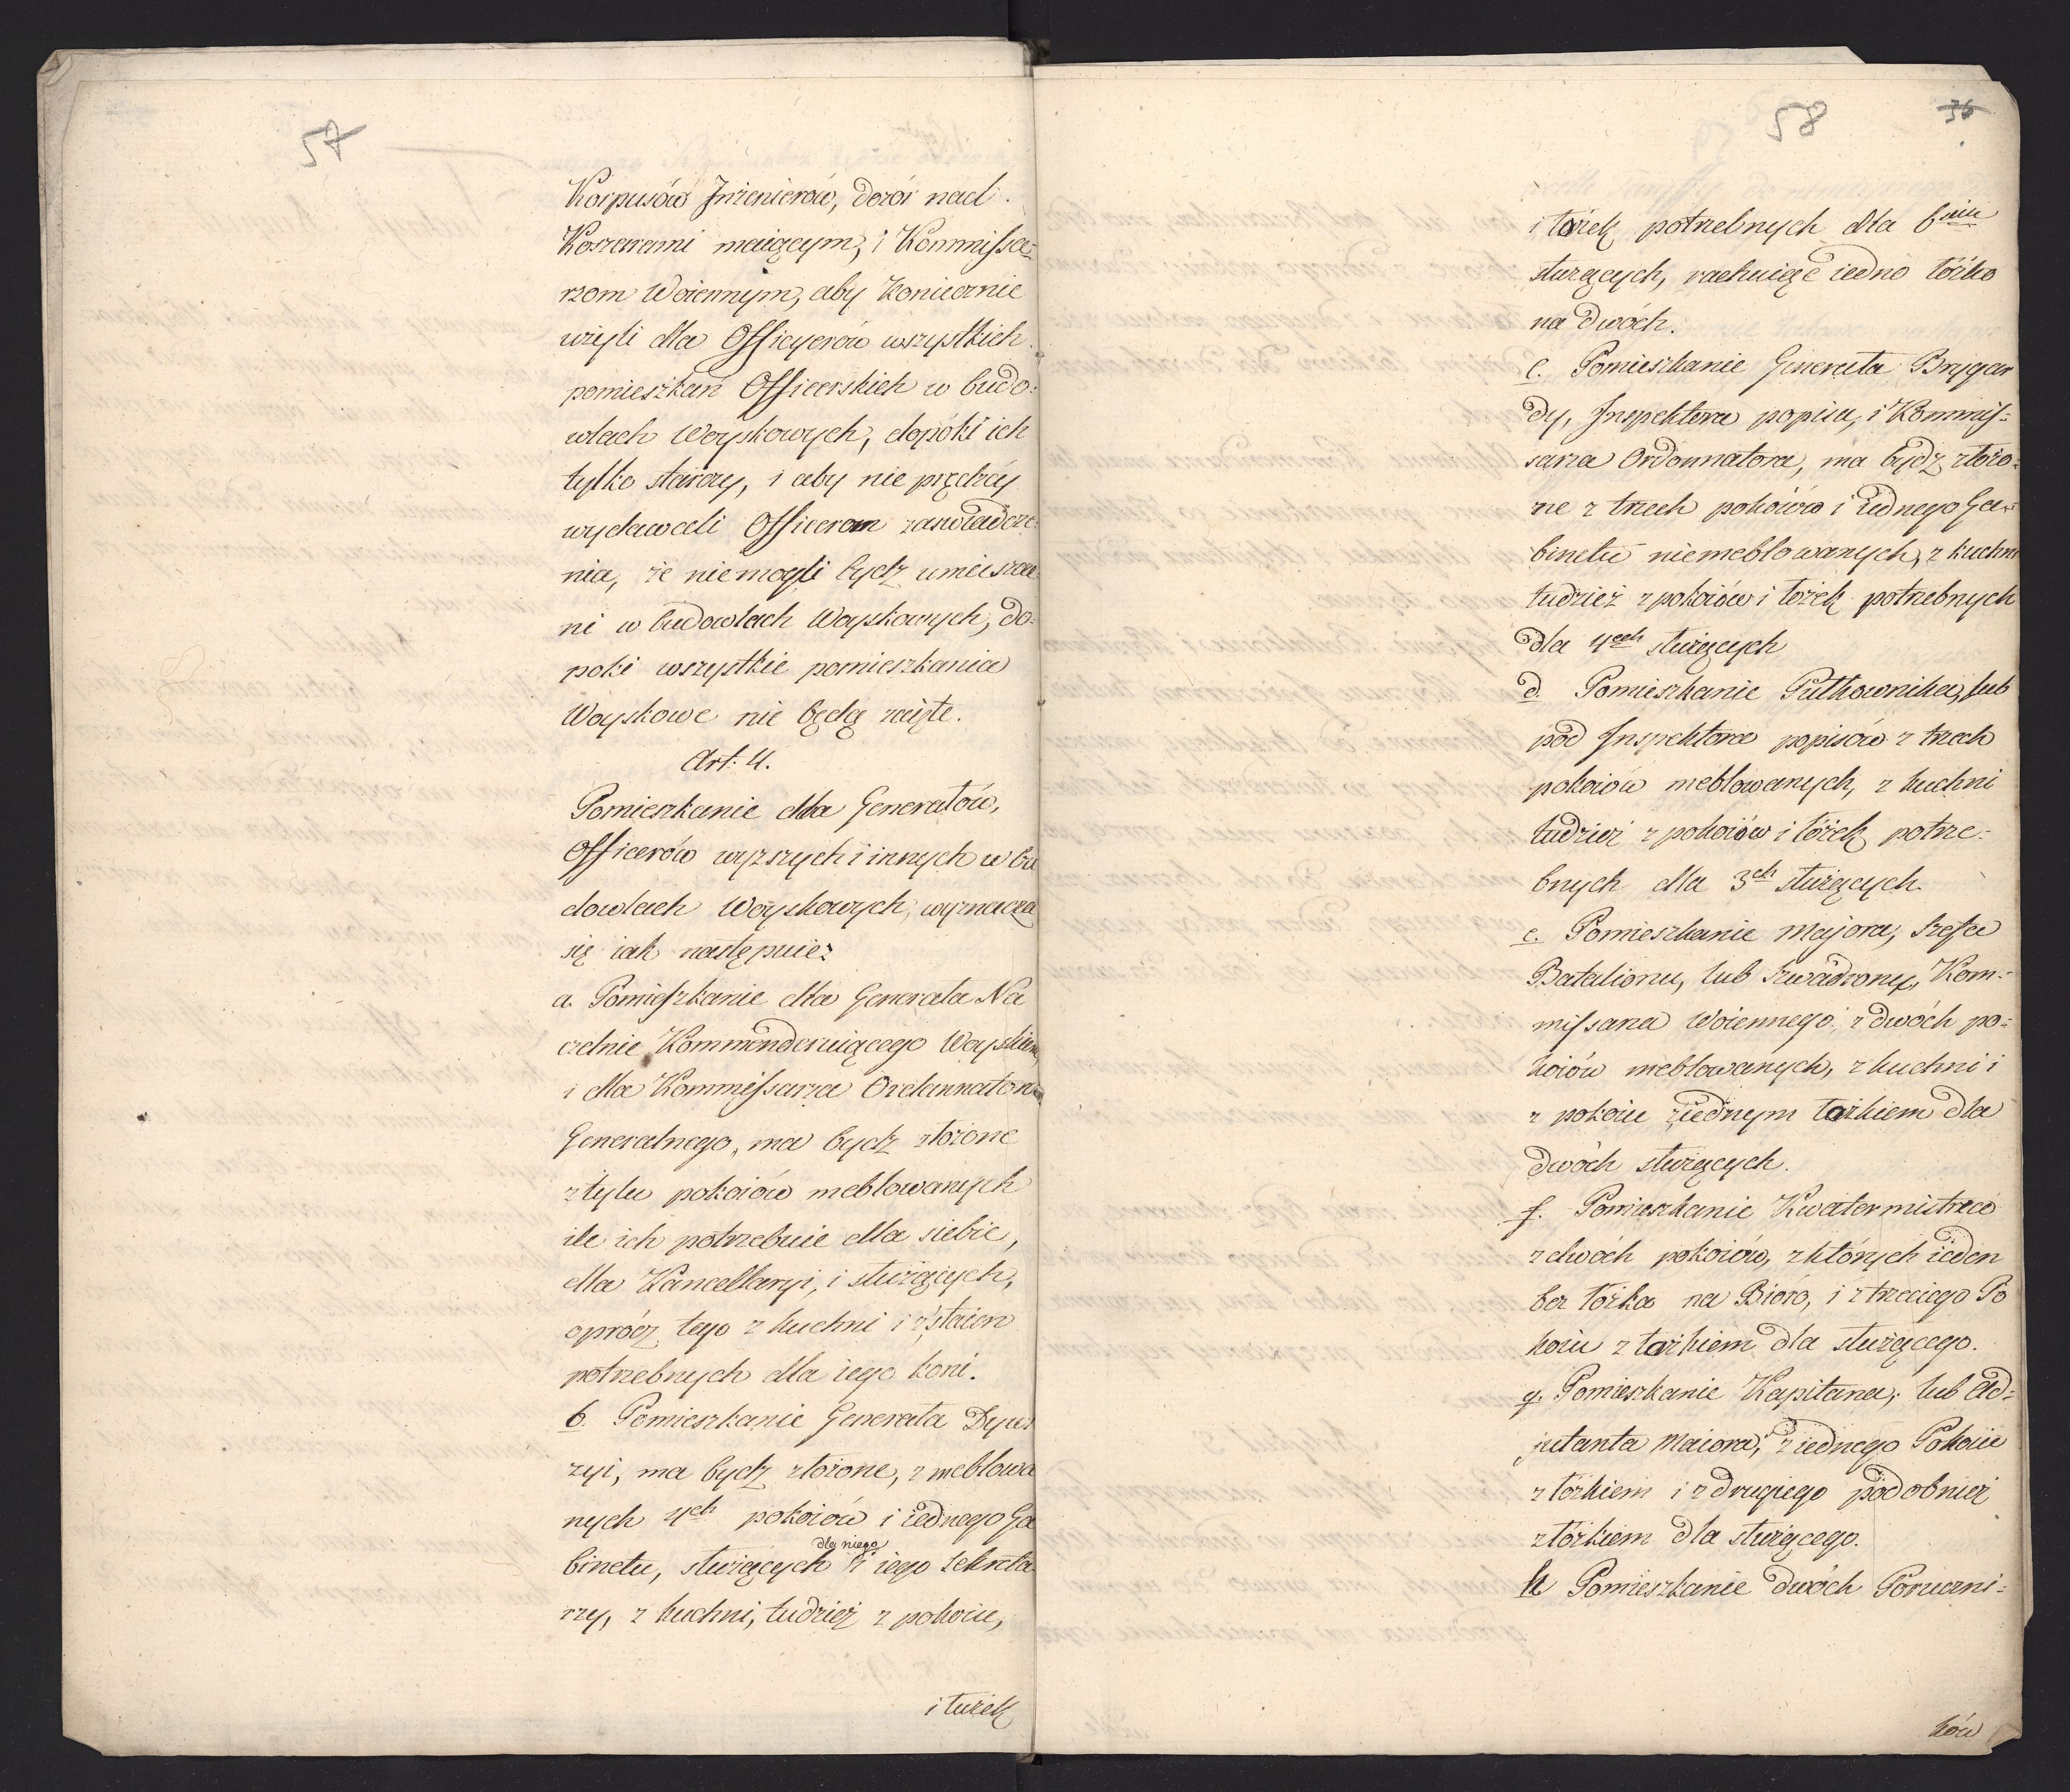 57
Korpusów Jnżenierów, dozór nad
Koszarami maiącym, i Kommissa-
rzom Woiennym, aby koniecznie
użyli dla Officyerów wszystkich
pomieszkań Officerskich w budo-
wlach Woyskowych, dopóki ich
tylko starczy, i aby nie prędzey
wydawali Officerom zaswiadcze-
nia, że niemogli bydź umieszcze-
ni w budowlach Woyskowych, do-
poki wszystkie pomieszkania
Woyskowe nie będą zaięte.
Art: 4.
Pomieszkanie dla Generałów,
Officerów wyzszych i innych w bu
dowlach Woyskowych, wyznacza
się iak następuie:
a. Pomieszkanie dla Generała Na
czelnie Kommenderuiącego Woyskiem,
i dla Kommissarza Ordonnatora
Generalnego, ma bydź złożone
z tylu pokoiów meblowanych
ile ich potrzebuie dla siebie,
dla Kancellaryi, i służących,
oprócz tego z kuchni i z staien
potrzebnych dla iego koni.
b. Pomieszkanie Generała Dywi
zyi, ma bydź złożone, z meblowa
nych 4ch pokoiów i iednego Ga
binetu, służących dla niego i iego Sekreta
rzy, z kuchni, tudzież z pokoiu,
i łużek
58 36
i łóżek potrzebnych dla 6ciu
służących, rachuiąc iedno łóżko
na dwóch.
c. Pomieszkanie Generała Bryga
dy, Jnspektora popisu, i Kommis-
sarza Ordonnatora, ma bydź złożo-
ne z trzech pokoiów i iednego Ga-
binetu niemeblowanych, z kuchni
tudzież z pokoiów i łóżek potrzebnych
dla 4ech służących
d. Pomieszkanie Pułkownika, lub
pod Jnspektora popisów z trzech
pokoiów meblowanych, z kuchni
tudzież z pokoiów i łóżek potrze-
bnych dla 3ch służących.
e. Pomieszkanie Majora, Szefa
Batalionu, lub Szwadronu, Kom-
missarza Woiennego, z dwóch po-
koiów meblowanych, z kuchni i
z pokoiu z iednym łóżkiem dla
dwóch służących.
f. Pomieszkanie Kwatermistrza
z dwóch pokoiów, z których ieden
bez łóżka na Bióro, i z trzeciego Po
koiu z łóżkiem dla służącego.
g. Pomieszkanie Kapitana, lub Ad-
jutanta Maiora, z iednego Pokoiu
z łóżkiem i z drugiego podobnież
z łóżkiem dla służącego.
h Pomieszkanie dwóch Poruczni-
ków